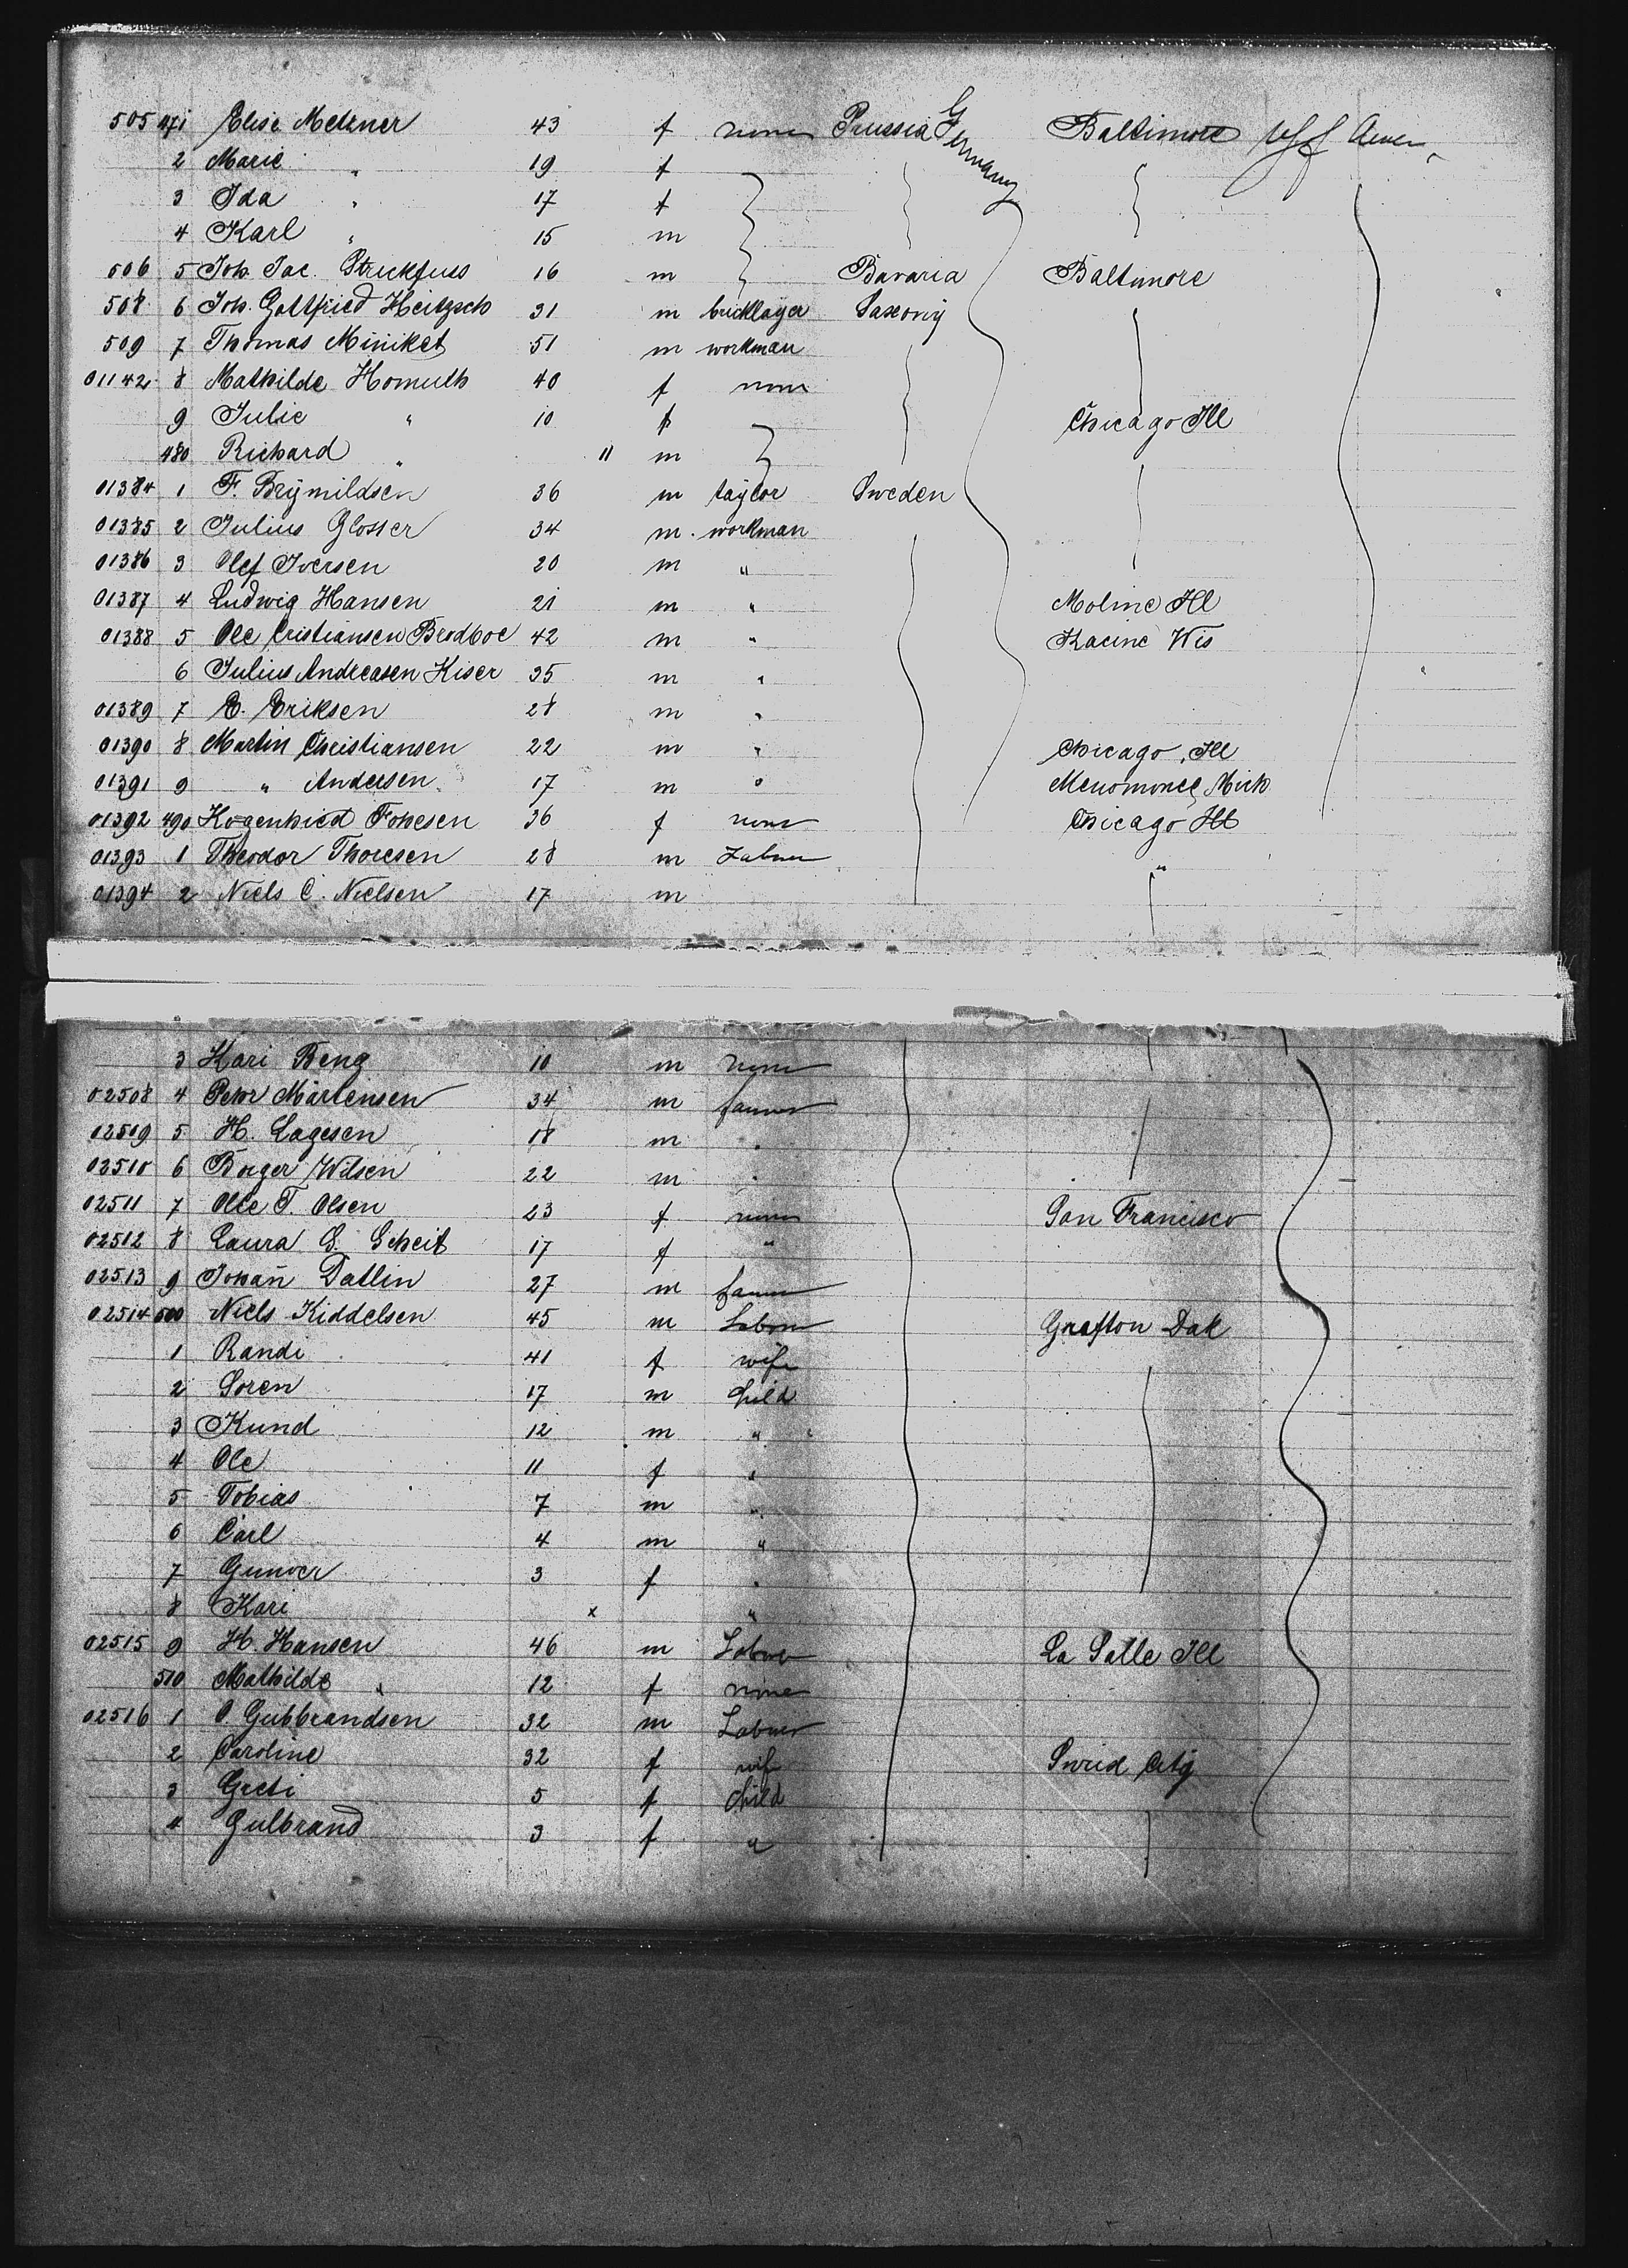 505 471 Elise Metzner 43 f none Prussia Germany Baltimore
2 Marie " 19 f
3 Ida " 17 f
4 Karl " 15 m
506 5 Joh. Jac. Strickfuss 16 m Bavaria Baltimore
508 6 Joh. Gottfried Heitzsch 31 m bricklayer Saxony
509 7 Thomas Miniket 51 m workman
01142 8 Mathilde Homuth 40 f none
9 Julie " 10 f Chicago Ill
480 Richard " 11 m
01384 1 F. Brymildsen 36 m taylor Sweden
01385 2 Julius Glosser 34 m. workman
01386 3 Olef Iversen 20 m "
01387 4 Ludwig Hansen 21 m " Moline Ill
01388 5 Ole Cristiansen Brodboe 42 m " Racine Wis
6 Julius Andreasen Kiser 35 m "
01389 7 E. Eriksen 28 m "
01390 8 Martin Christiansen 22 m " Chicago, Ill
01391 9 " Andersen 17 m " Menomonee Mich
01392 490 Fohesen 36 f none Chicago Ill
01393 1 Theodor Thoresen 28 m Labour "
01394 2 Niels C. Nielsen 17 m
3 Kari Beng 10 m none
02508 4 Pehr Mårtensen 34 m farmer
02509 5 H. Lagesen 18 m "
02510 6 Borger Wilsen 22 m "
02511 7 Olle T. Olsen 23 f none San Francisco
02512 8 Laura G. Scheit 17 f "
02513 9 Johan̄ Datlin 27 m farmer
02514 500 Niels Kiddelsen 45 m Labour Grafton Dak
1 Randi 41 f wife
2 Soren 17 m Child
3 Kund 12 m "
4 Ole 11 f "
5 Tobias 7 m "
6 Carl 4 m "
7 Gunver 3 f "
8 Kari x "
02515 9 H. Hansen 46 m Labour La Salle Ill
510 Mathilde " 12 f none
02516 1 O. Gubbrandsen 32 m Labour
2 Caroline 32 f wife City
3 Greti 5 f Child
4 Gulbrand 3 f "